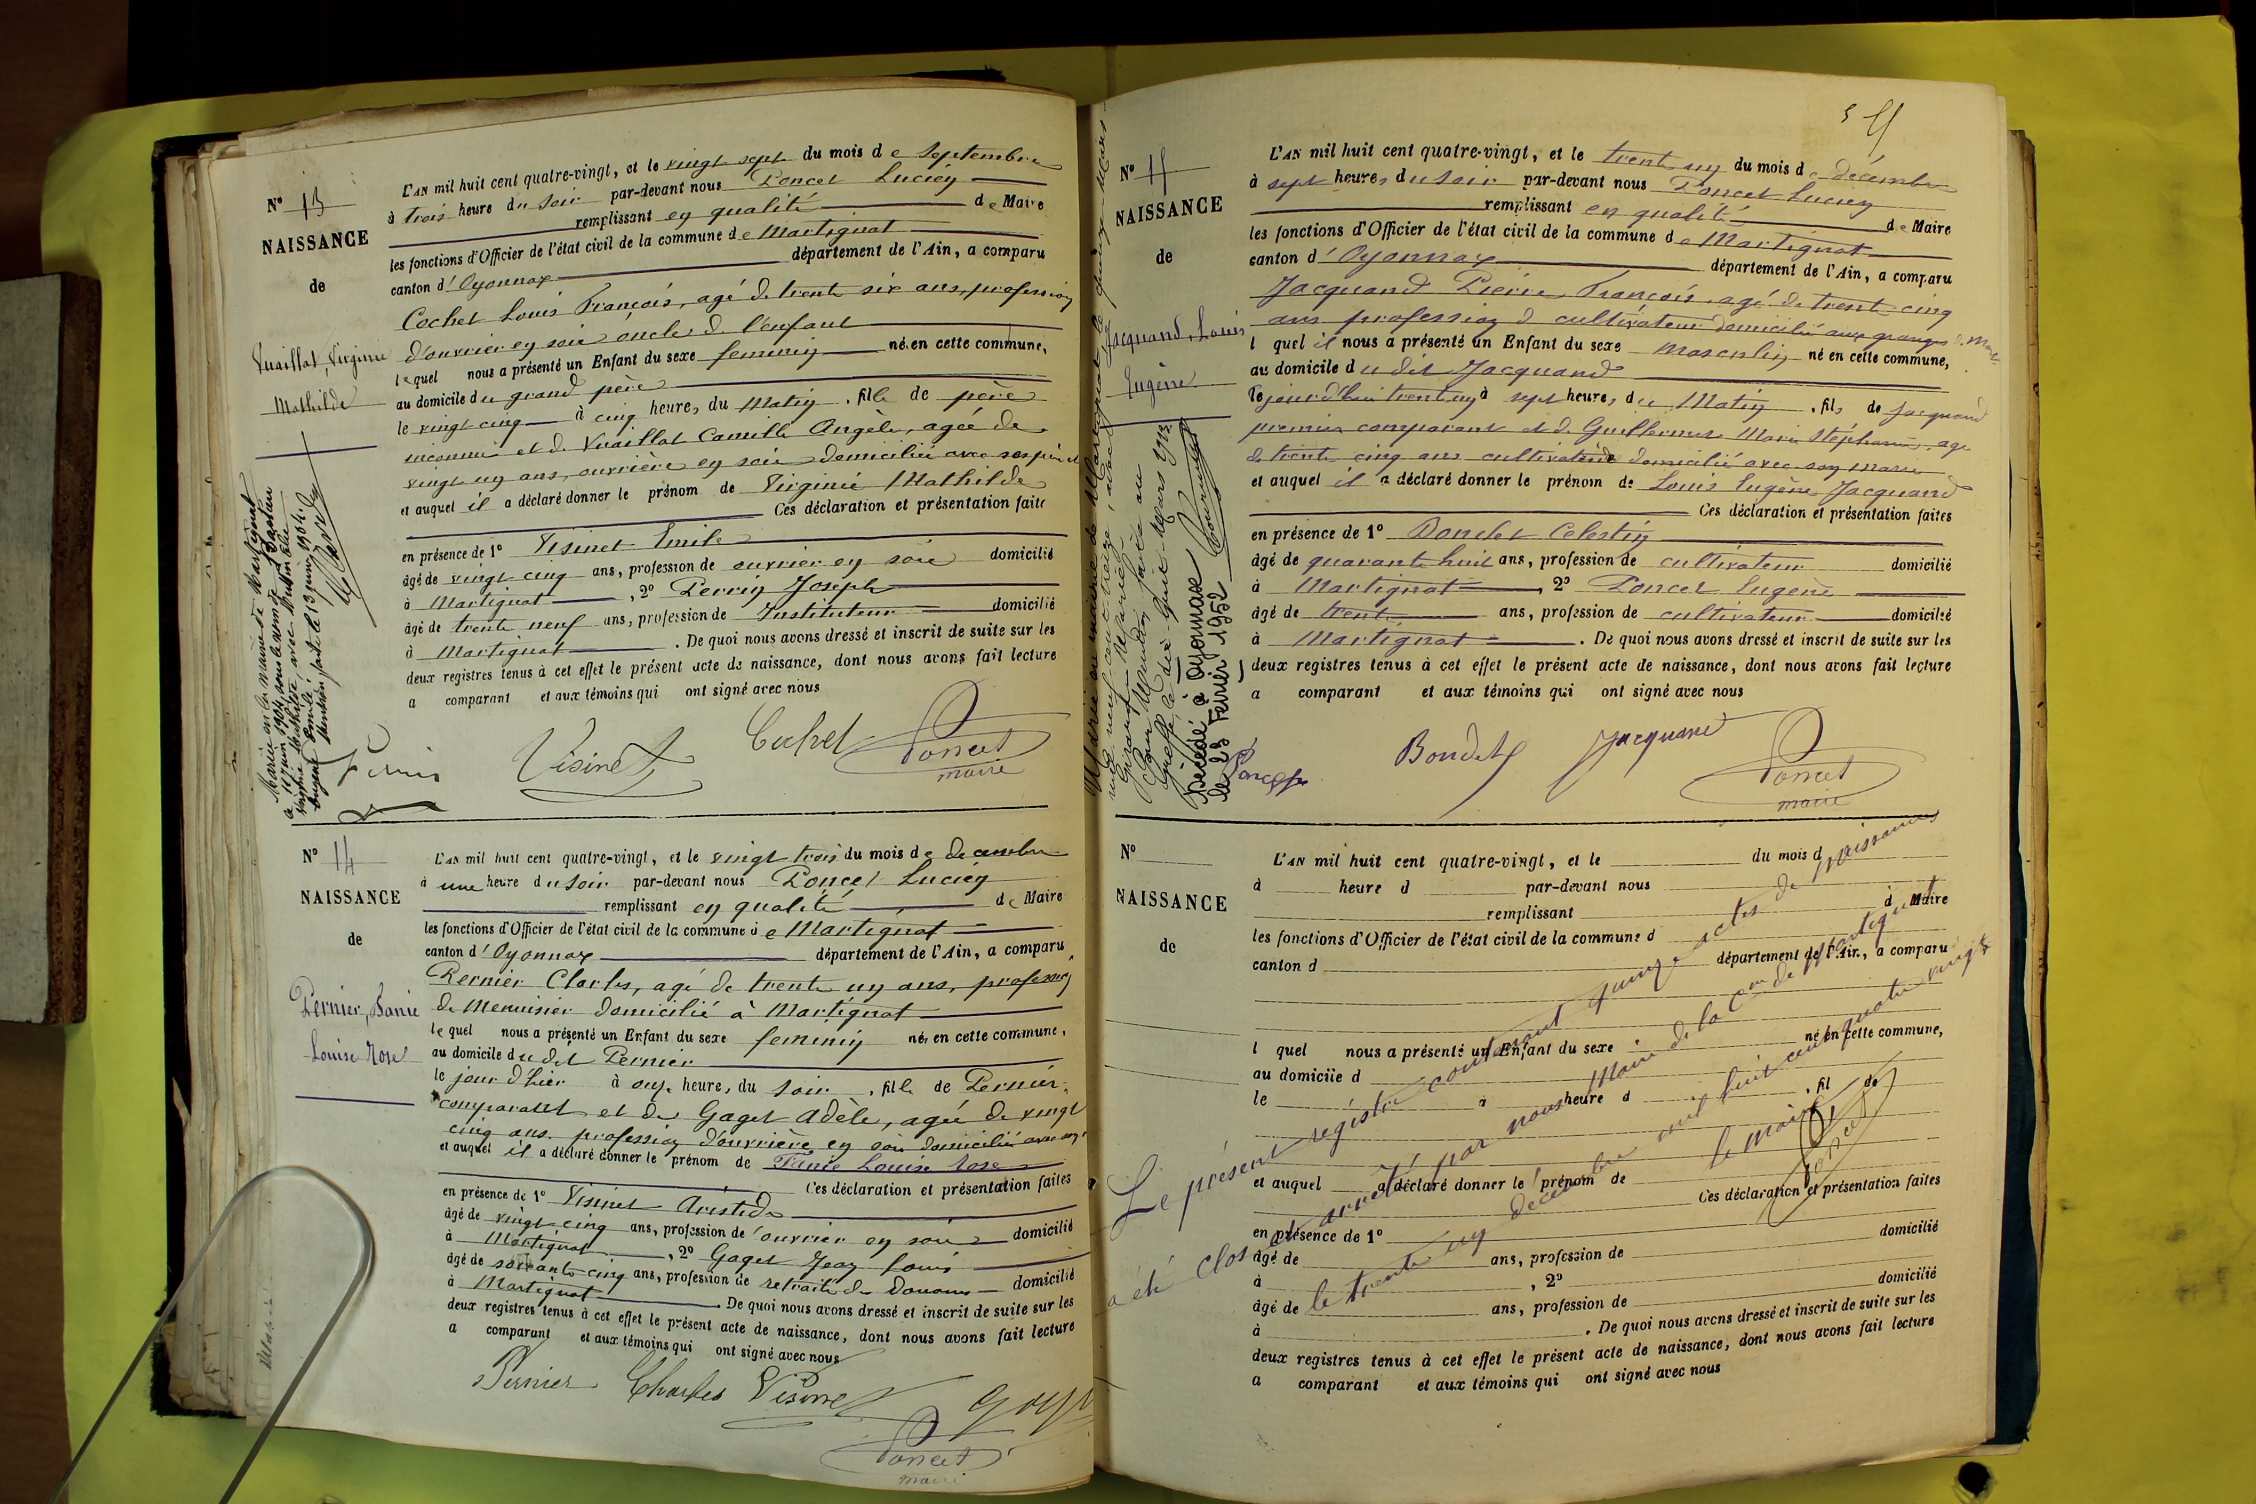 N° 13
NAISSANCE
de
Vuaillat, Virginie
Mathilde
L'AN mil huit cent quatre-vingt, et le vingt sept du mois de Septembre
à trois heure du soir par-devant nous Poncet Lucien
remplissant en qualité de Maire
les fonctions d'Officier de l'état civil de la commune de Martignat
canton d'Oyonnax département de l'Ain, a comparu
Cochet Louis François, agé de trente six ans, profession
d'ouvrier en soie oncle de l'enfant
lequel nous a présenté un Enfant du sexe feminin né en cette commune,
au domicile du grand père
le vingt cinq à cinq heures du Matin, fille de père
inconnu et de Vuaillat Camille Angèle, agée de
vingt un ans, ouvrière en soie domiciliée avec ses père et
et auquel il a déclaré donner le prénom de Virginie Mathilde
Ces déclaration et présentation faite
en présence de 1° Visinet Emile
âgé de vingt cinq ans, profession de ouvrier en soie domicilié
à Martignat, 2° Perrin Joseph
âgé de trente neuf ans, profession de Instituteur domicilié
à Martignat. De quoi nous avons dressé et inscrit de suite sur les
deux registres tenus à cet effet le présent acte de naissance, dont nous avons fait lecture
a comparant et aux témoins qui ont signé avec nous
Mariée en la mairie de Martignat
Visinet
Cochet
Poncet
maire
N° 14
NAISSANCE
de
Pernier, Fanie
Louise Rose
L'AN mil huit cent quatre-vingt, et le vingt trois du mois de decembre
à une heure du soir par-devant nous Poncet Lucien
remplissant en qualité de Maire
les fonctions d'Officier de l'état civil de la commune de Martignat
canton d'Oyonnax département de l'Ain, a comparu
Pernier Charles, agé de trente un ans, profession
de Menuisier domicilié à Martignat
lequel nous a présenté un Enfant du sexe feminin née en cette commune,
au domicile du dit Pernier
le jour d'hier à onze heure, du soir, fille de Pernier
comparant et de Gaget Adèle, agée de vingt
cinq ans profession d'ouvrière en soie domiciliée avec
et auquel il a déclaré donner le prénom de Fanie Louise Rose
Ces déclaration et présentation faites
en présence de 1° Visinet Aristide
âgé de vingt cinq ans, profession de ouvrier en soie domicilié
à Martignat, 2° Gaget Jean Louis
âgé de soixante cinq ans, profession de retraité de Douane domicilié
à Martignat. De quoi nous avons dressé et inscrit de suite sur les
deux registres tenus à cet effet le présent acte de naissance, dont nous avons fait lecture
a comparant et aux témoins qui ont signé avec nous
Pernier Charles Visinet
Poncet
maire
N° 15
NAISSANCE
de
Jacquand, Louis
Eugène
L'AN mil huit cent quatre-vingt, et le trent un du mois de décembre
à sept heures du soir par-devant nous Poncet Lucien
remplissant en qualité de Maire
les fonctions d'Officier de l'état civil de la commune de Martignat
canton d'Oyonnax département de l'Ain, a comparu
Jacquand Pierre François, agé de trent cinq
ans profession de cultivateur domicilié aux granges
lquel il nous a présenté un Enfant du sexe Masculin né en cette commune,
au domicile du dit Jacquand
le jourd'hui trent un à sept heures, du Matin, fils de Jacquand
premier comparant et de Guillermet Marie Stéphanie, age
de trente cinq ans cultivateur domicilié avec son marie
et auquel il a déclaré donner le prénom de Louis Eugène Jacquand
Ces déclaration et présentation faites
en présence de 1° Bondet Celestin
âgé de quarante huit ans, profession de cultivateur domicilié
à Martignat, 2° Poncet Eugène
âgé de trent ans, profession de cultivateur domicilié
à Martignat. De quoi nous avons dressé et inscrit de suite sur les
deux registres tenus à cet effet le présent acte de naissance, dont nous avons fait lecture
a comparant et aux témoins qui ont signé avec nous
Décédé à Oyonnax
le 23 Février 1952
Poncet
Bondet
Jacquand
Poncet
maire
N°
NAISSANCE
de
L'AN mil huit cent quatre-vingt, et le du mois d
à heure d par-devant nous
remplissant d Maire
les fonctions d'Officier de l'état civil de la commune d
canton d département de l'Ain, a comparu
l quel nous a présenté un Enfant du sexe né en cette commune,
au domicile d
le à heure d , fil de
et auquel a déclaré donner le prénom de
Ces déclaration et présentation faites
en présence de 1°
âgé de ans, profession de domicilié
à , 2°
âgé de ans, profession de domicilié
à . De quoi nous avons dressé et inscrit de suite sur les
deux registres tenus à cet effet le présent acte de naissance, dont nous avons fait lecture
a comparant et aux témoins qui ont signé avec nous
Le présent registre contenant quinze actes de naissances
a été clos et arrêté par nous Maire de la Cne de Martignat
le trente un décembre mil huit cent quatre vingt
le maire
Poncet